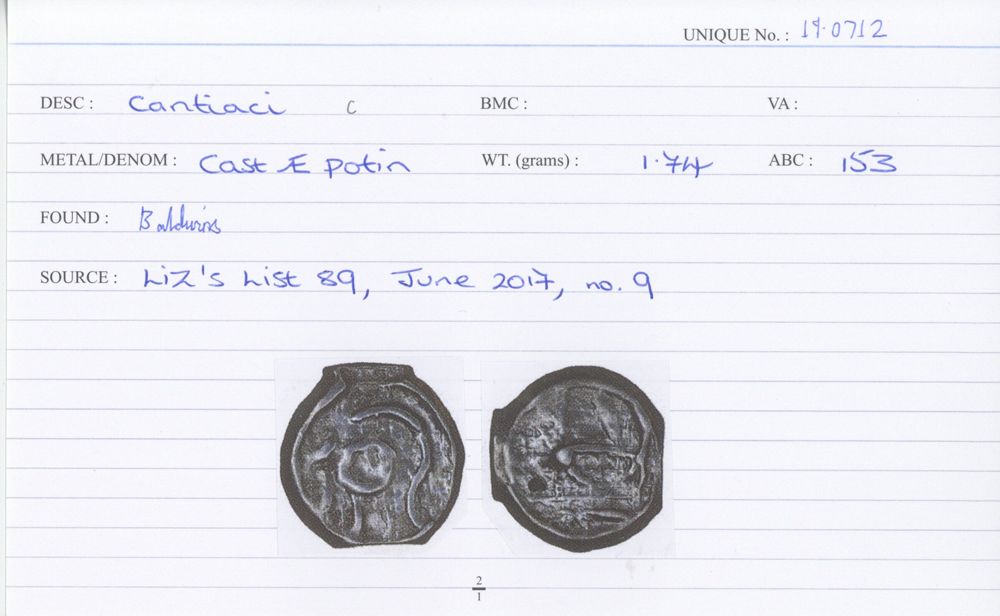 UNIQUE No. : 19.0712
DESC : Cantiaci C BMC : VA :
METAL/DENOM : Cast Æ potin WT. (grams) : 1.74 ABC : 153
FOUND : Baldwins
SOURCE : Liz's List 89, June 2017, no. 9
2
1